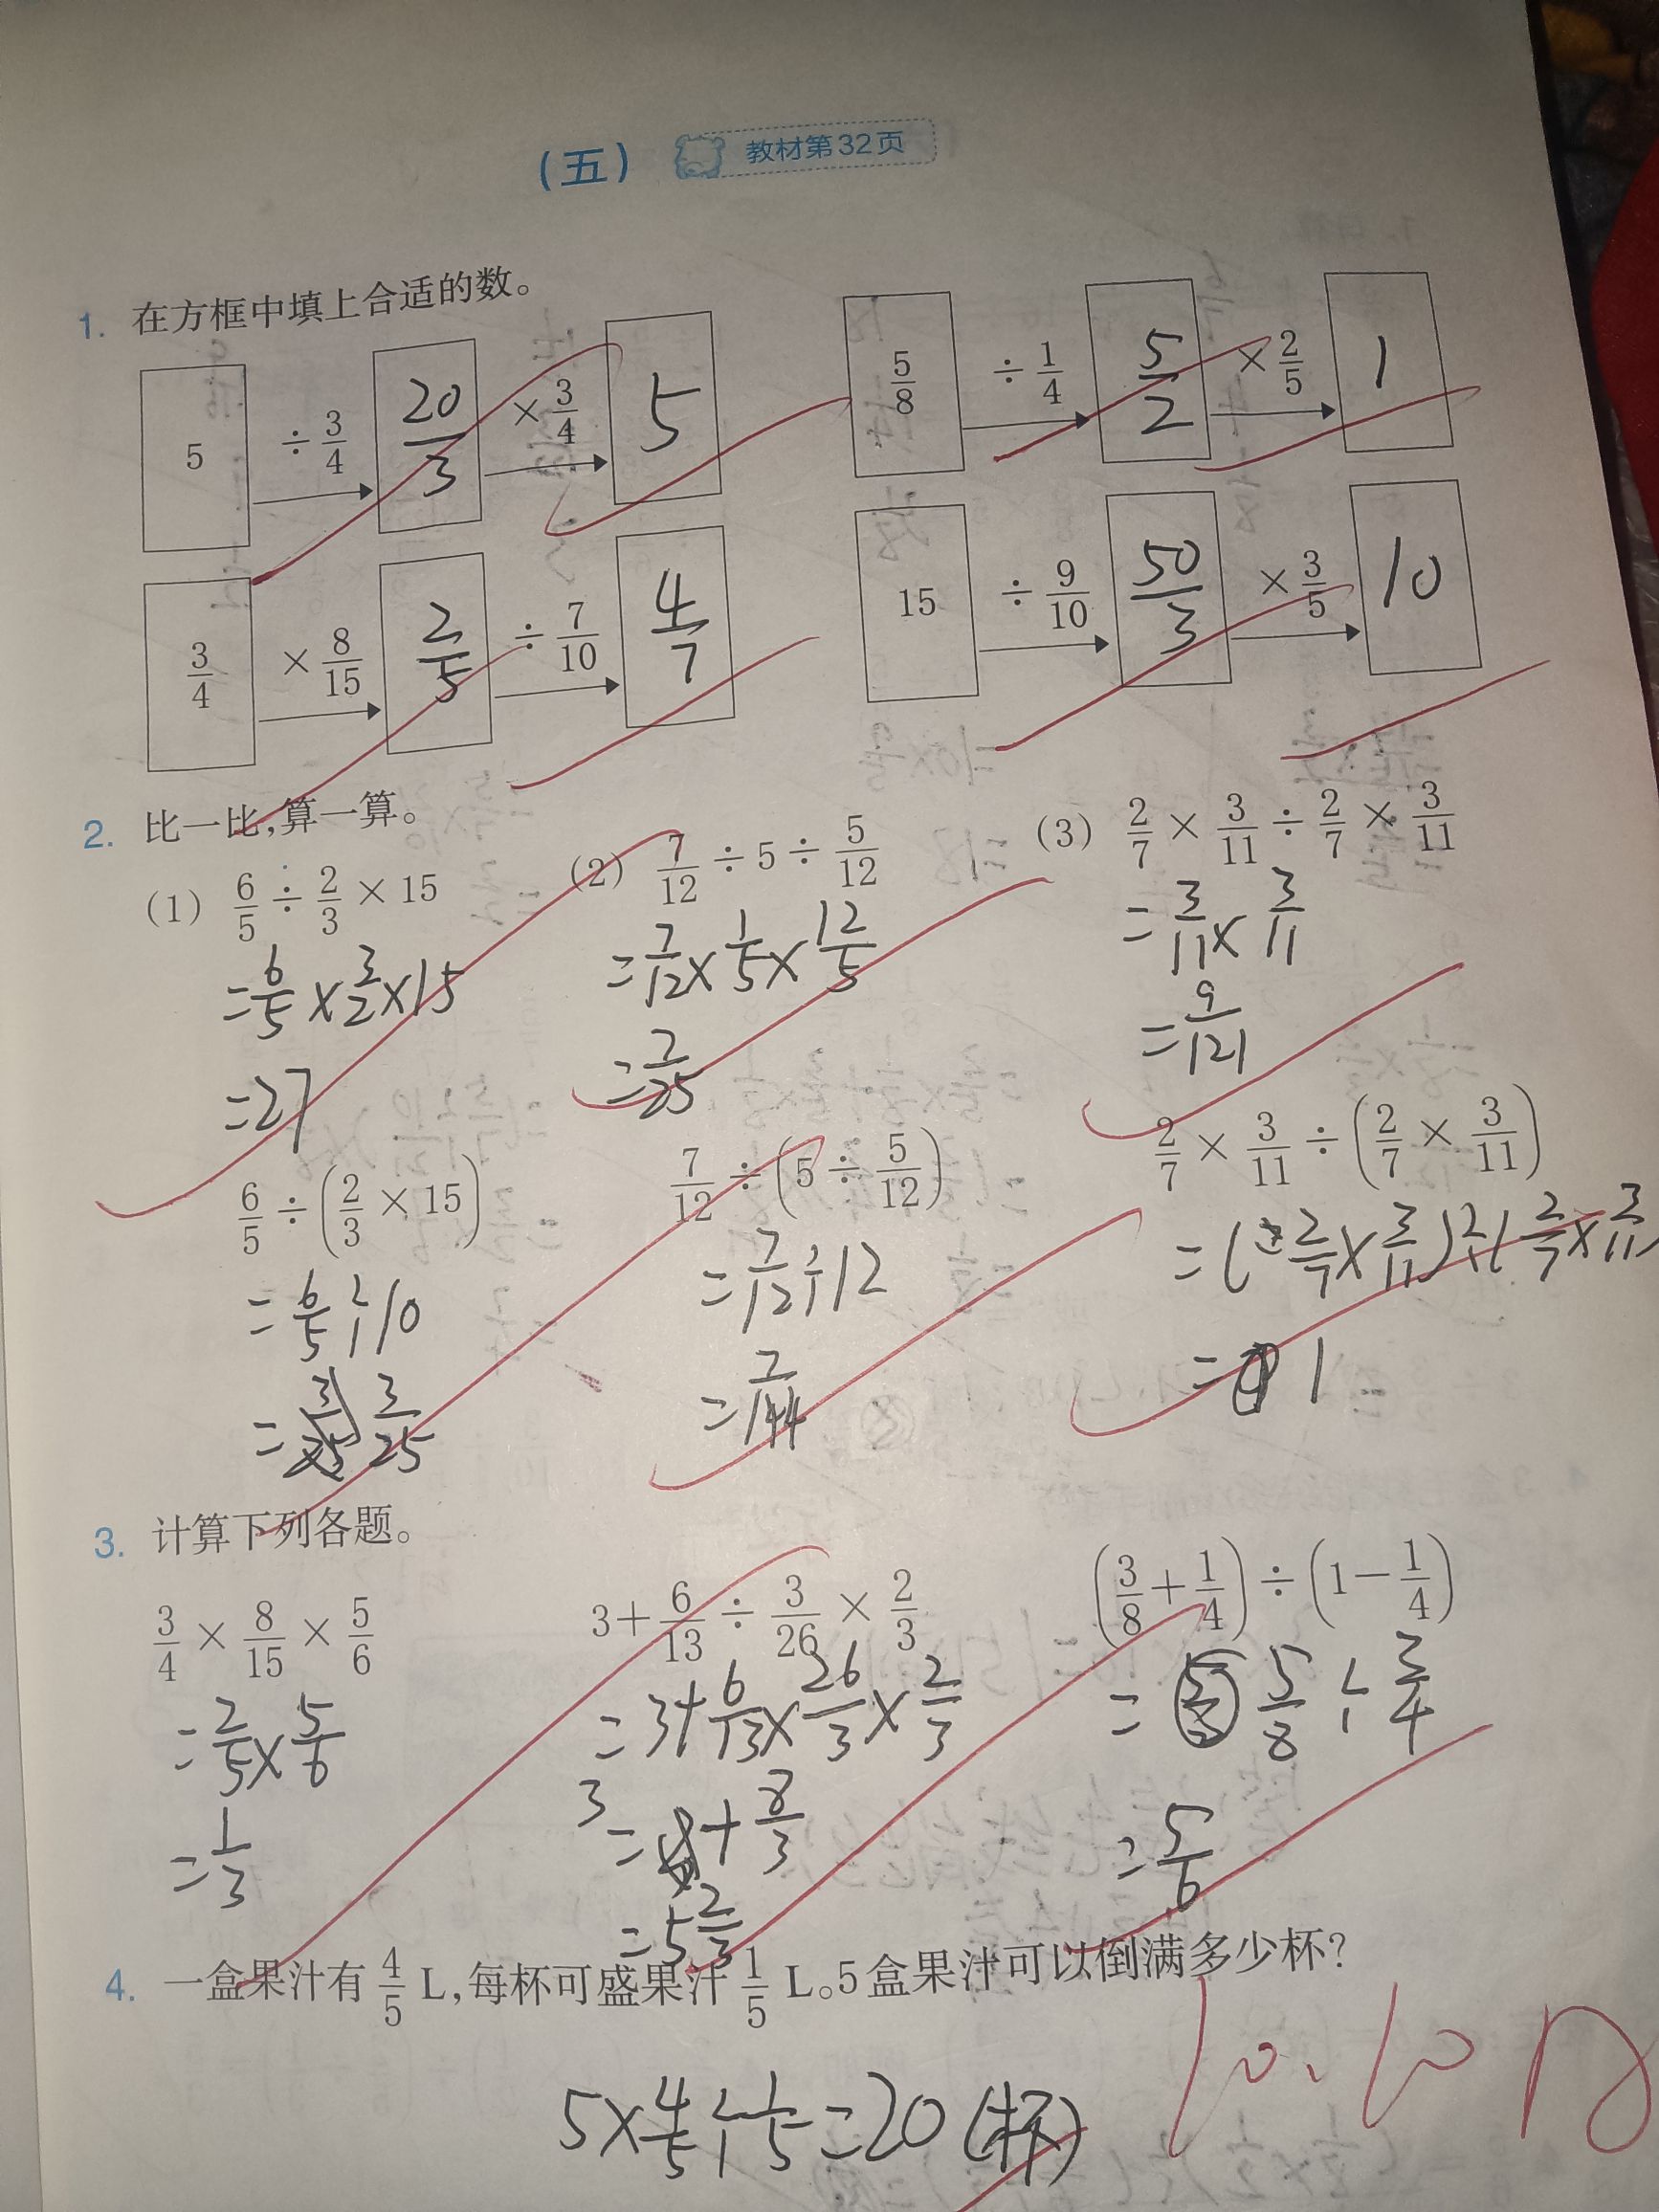 (五) 教材第32页
1. 在方框中填上合适的数。
5 ÷ 3/4 20/3 × 3/4 5
5/8 ÷ 1/4 5/2 × 2/5 1
3/4 × 8/15 2/5 ÷ 7/10 4/7
15 ÷ 9/10 50/3 × 3/5 10
2. 比一比,算一算。
(1) 6/5 ÷ 2/3 × 15
=6/5×3/2×15
=27
6/5 ÷ (2/3 × 15)
=6/5÷10
=3/25
(2) 7/12 ÷ 5 ÷ 5/12
=7/12×1/5×12/5
=7/25
7/12 ÷ (5 ÷ 5/12)
=7/12÷12
=7/144
(3) 2/7 × 3/11 ÷ 2/7 × 3/11
=3/11×3/11
=9/121
2/7 × 3/11 ÷ (2/7 × 3/11)
=(2/7×3/11)÷(2/7×3/11)
=1
3. 计算下列各题。
3/4 × 8/15 × 5/6
=2/5×5/6
=1/3
3+6/13 ÷ 3/26 × 2/3
=3+6/13×26/3×2/3
3=+8/3
=5 2/3
(3/8+1/4) ÷ (1-1/4)
=5/8÷3/4
=5/6
4. 一盒果汁有4/5 L,每杯可盛果汁1/5 L。5盒果汁可以倒满多少杯?
5×4/5÷1/5=20(杯)
10.10